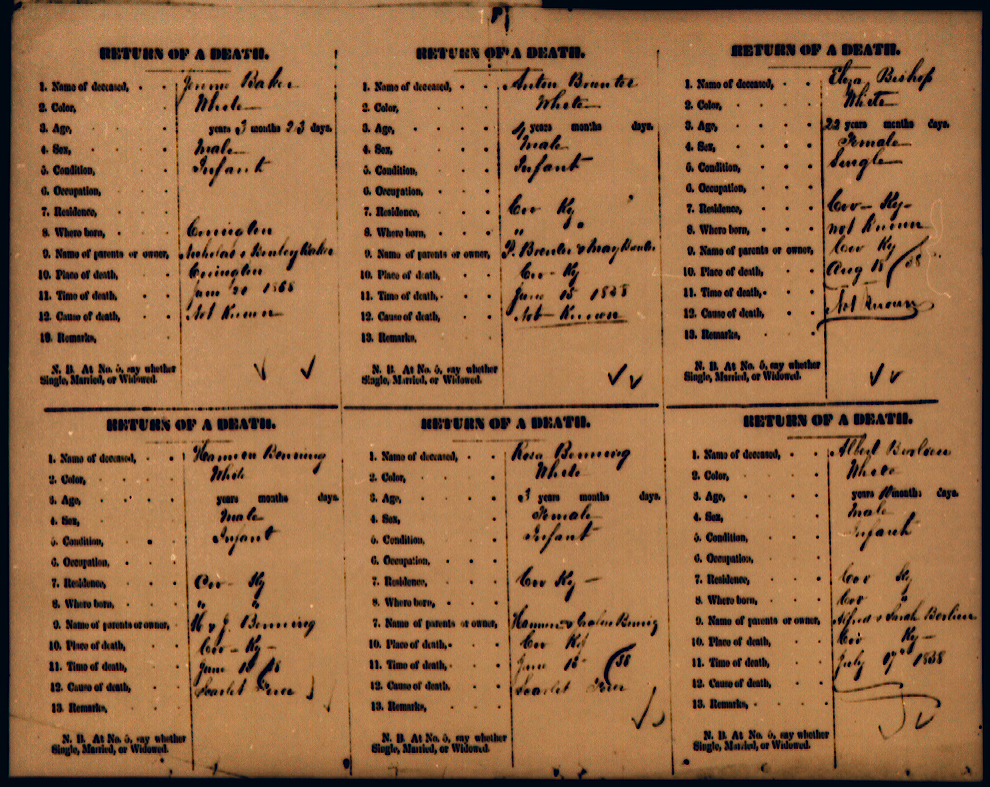 RETURN OF A DEATH.
1. Name of deceased, Baker
2. Color, White
3. Age, years 3 months 23 days.
4. Sex, Male
5. Condition, Infant
6. Occupation,
7. Residence,
8. Where born, Covington
9. Name of parents or owner, Nicholas & Baker
10. Place of death, Covington
11. Time of death, June 20 1858
12. Cause of death, Not Known
13. Remarks,
N. B. At No. 5, say whether
Single, Married, or Widowed.
RETURN OF A DEATH.
1. Name of deceased, Anton
2. Color, White
3. Age, 4 years months days.
4. Sex, Male
5. Condition, Infant
6. Occupation,
7. Residence, Cov Ky
8. Where born, " "
9. Name of parents or owner, P. & May
10. Place of death, Cov - Ky
11. Time of death, June 15 1858
12. Cause of death, Not Known
13. Remarks,
N. B. At No. 5, say whether
Single, Married, or Widowed.
RETURN OF A DEATH.
1. Name of deceased, Eliza Bishop
2. Color, White
3. Age, 22 years months days.
4. Sex, Female
5. Condition, Single
6. Occupation,
7. Residence, Cov - Ky -
8. Where born, not Known
9. Name of parents or owner, Cov Ky
10. Place of death, Aug 18 / 58
11. Time of death,
12. Cause of death, Not Known
13. Remarks,
N. B. At No. 5, say whether
Single, Married, or Widowed.
RETURN OF A DEATH.
1. Name of deceased, Harmon Benning
2. Color, White
3. Age, years months days.
4. Sex, Male
5. Condition, Infant
6. Occupation,
7. Residence, Cov - Ky
8. Where born, " "
9. Name of parents or owner, H & J. Benning
10. Place of death, Cov - Ky -
11. Time of death, June 58
12. Cause of death, Scarlet Fever
13. Remarks,
N. B. At No. 5, say whether
Single, Married, or Widowed.
RETURN OF A DEATH.
1. Name of deceased, Rosa Benning
2. Color, White
3. Age, 3 years months days.
4. Sex, Female
5. Condition, Infant
6. Occupation,
7. Residence, Cov Ky -
8. Where born,
7. Name of parents or owner, Harmon & Benning
10. Place of death, Cov Ky
11. Time of death, June 15 / 58
12. Cause of death, Scarlet Fever
13. Remarks,
N. B. At No. 5, say whether
Single, Married, or Widowed.
RETURN OF A DEATH.
1. Name of deceased, Albert Berlien
2. Color, White
3. Age, years months days.
4. Sex, Male
5. Condition, Infant
6. Occupation,
7. Residence, Cov Ky
8. Where born, Cov "
9. Name of parents or owner, Alfred & Sarah Berlien
10. Place of death, Cov Ky -
11. Time of death, July 17 1858
12. Cause of death,
13. Remarks,
N. B. At No. 5, say whether
Single, Married, or Widowed.